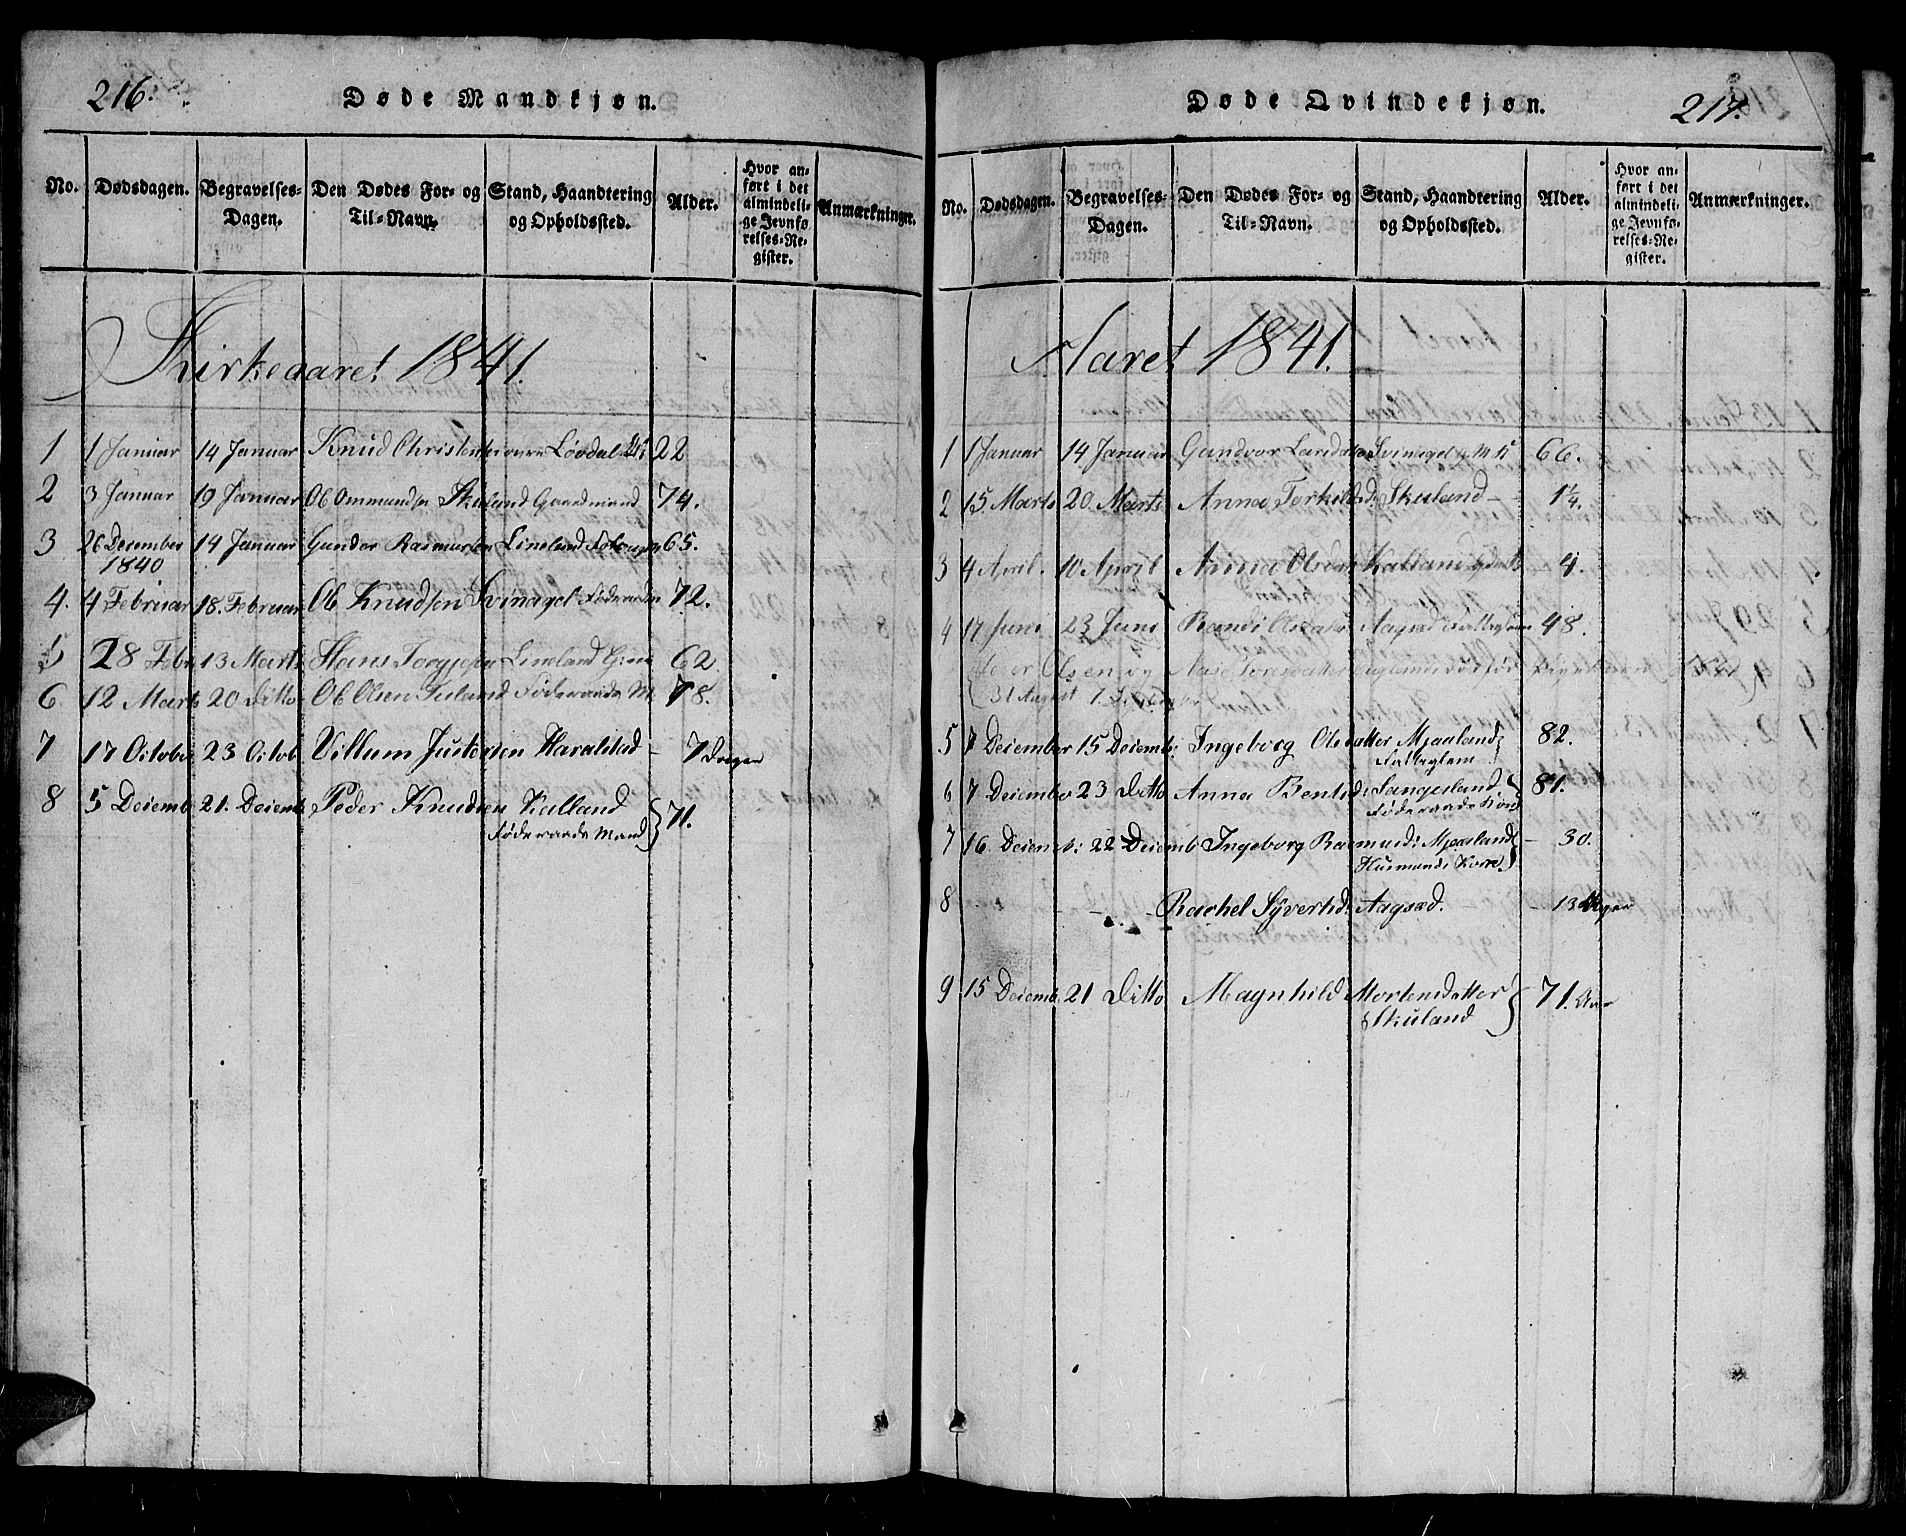 216.
Døde Mandkjøn.
No. Dødsdagen. Begravelses-Dagen. Den Dødes For- og Til-Navn. Stand, Haandtering og Opholdssted. Alder. Hvor anført i det almindelige Jevnførelses-Register. Anmærkninger.
Kirkeaaret 1841.
1 1 Januar 14 Januar Knud Christensen Løvdal 22
2 3 Januar 19 Januar Ob Ommundsen Skuland Gaardmand 74.
3 26 December 14 Januar Gunder Rasmussen Lineland 65.
1840
4. 4 Februar 18. Februar Ob Knudsen Svinagel 72.
5 28 Febr 13 Marts Hans Torgjesen Lineland 62
6 12 Marts 20 Ditto Ob Olsen Føderaads M. 78.
7 17 Octobr 23 Octob Villum Justersen Haralstad – 7 Dage
8 5 Decemb 21. Decemb Peder Knudsen Kalland 71.
Føderaads Mand
217.
Døde Qvindekjøn.
No. Dødsdagen. Begravelses-Dagen. Den Dødes For- og Til-Navn. Stand, Haandtering og Opholdssted. Alder. Hvor anført i det almindelige Jevnførelses-Register. Anmærkninger.
Aaret 1841.
1 1 Januar 14 Januar Gundvor Svinagel 66.
2 15 Marts 20. Marts Anna Torkilsd. Skuland – 1¼.
3 4 April. 10 April Anna Olsdr Kalland 4.
4 17 Juni 23 Juni Randi Olsdatter Aagsæd 48.
Olsen og Aase
31 August
5 7 December 15 Decemb: Ingeborg Olsdatter Mjaaland 82.
6 7 December 23 Ditto Anna Bentsd: Sangesland 81.
Føderaads Kone
7 16 Decemb: 22 Decemb Ingeborg Rasmusd: Mjaaland – 30.
Husmands Kone
8 – – Rachel Syvertsd: Aagsæd. – 13 Uger
9 15 Decemb: 21 Ditto Magnhild Mortensdatter 71. Aar
Skuland